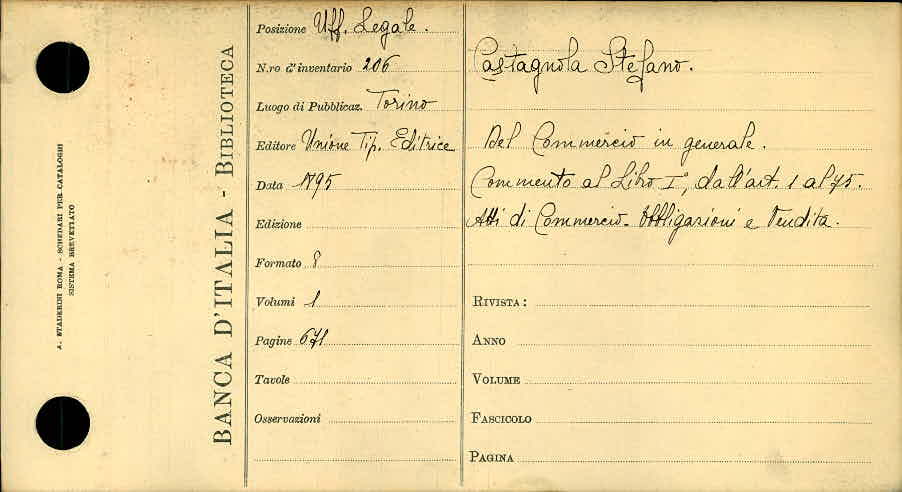 A. STADERINI ROMA - SCHEDARI PER CATALOGHI
SISTEMA BREVETTATO
BANCA D'ITALIA - BIBLIOTECA
Posizione Uff. Legale.
N.ro d'inventario 206
Luogo di Pubblicaz. Torino
Editore Unione Tip. Editrice
Data 1895
Edizione
Formato 8
Volumi 1
Pagine 671
Tavole
Osservazioni
Castagnola Stefano.
Del Commercio in generale.
Commento al Libro I°, dall'art. 1 al 75.
Atti di Commercio - Obbligazioni e Vendita.
RIVISTA:
ANNO
VOLUME
FASCICOLO
PAGINA